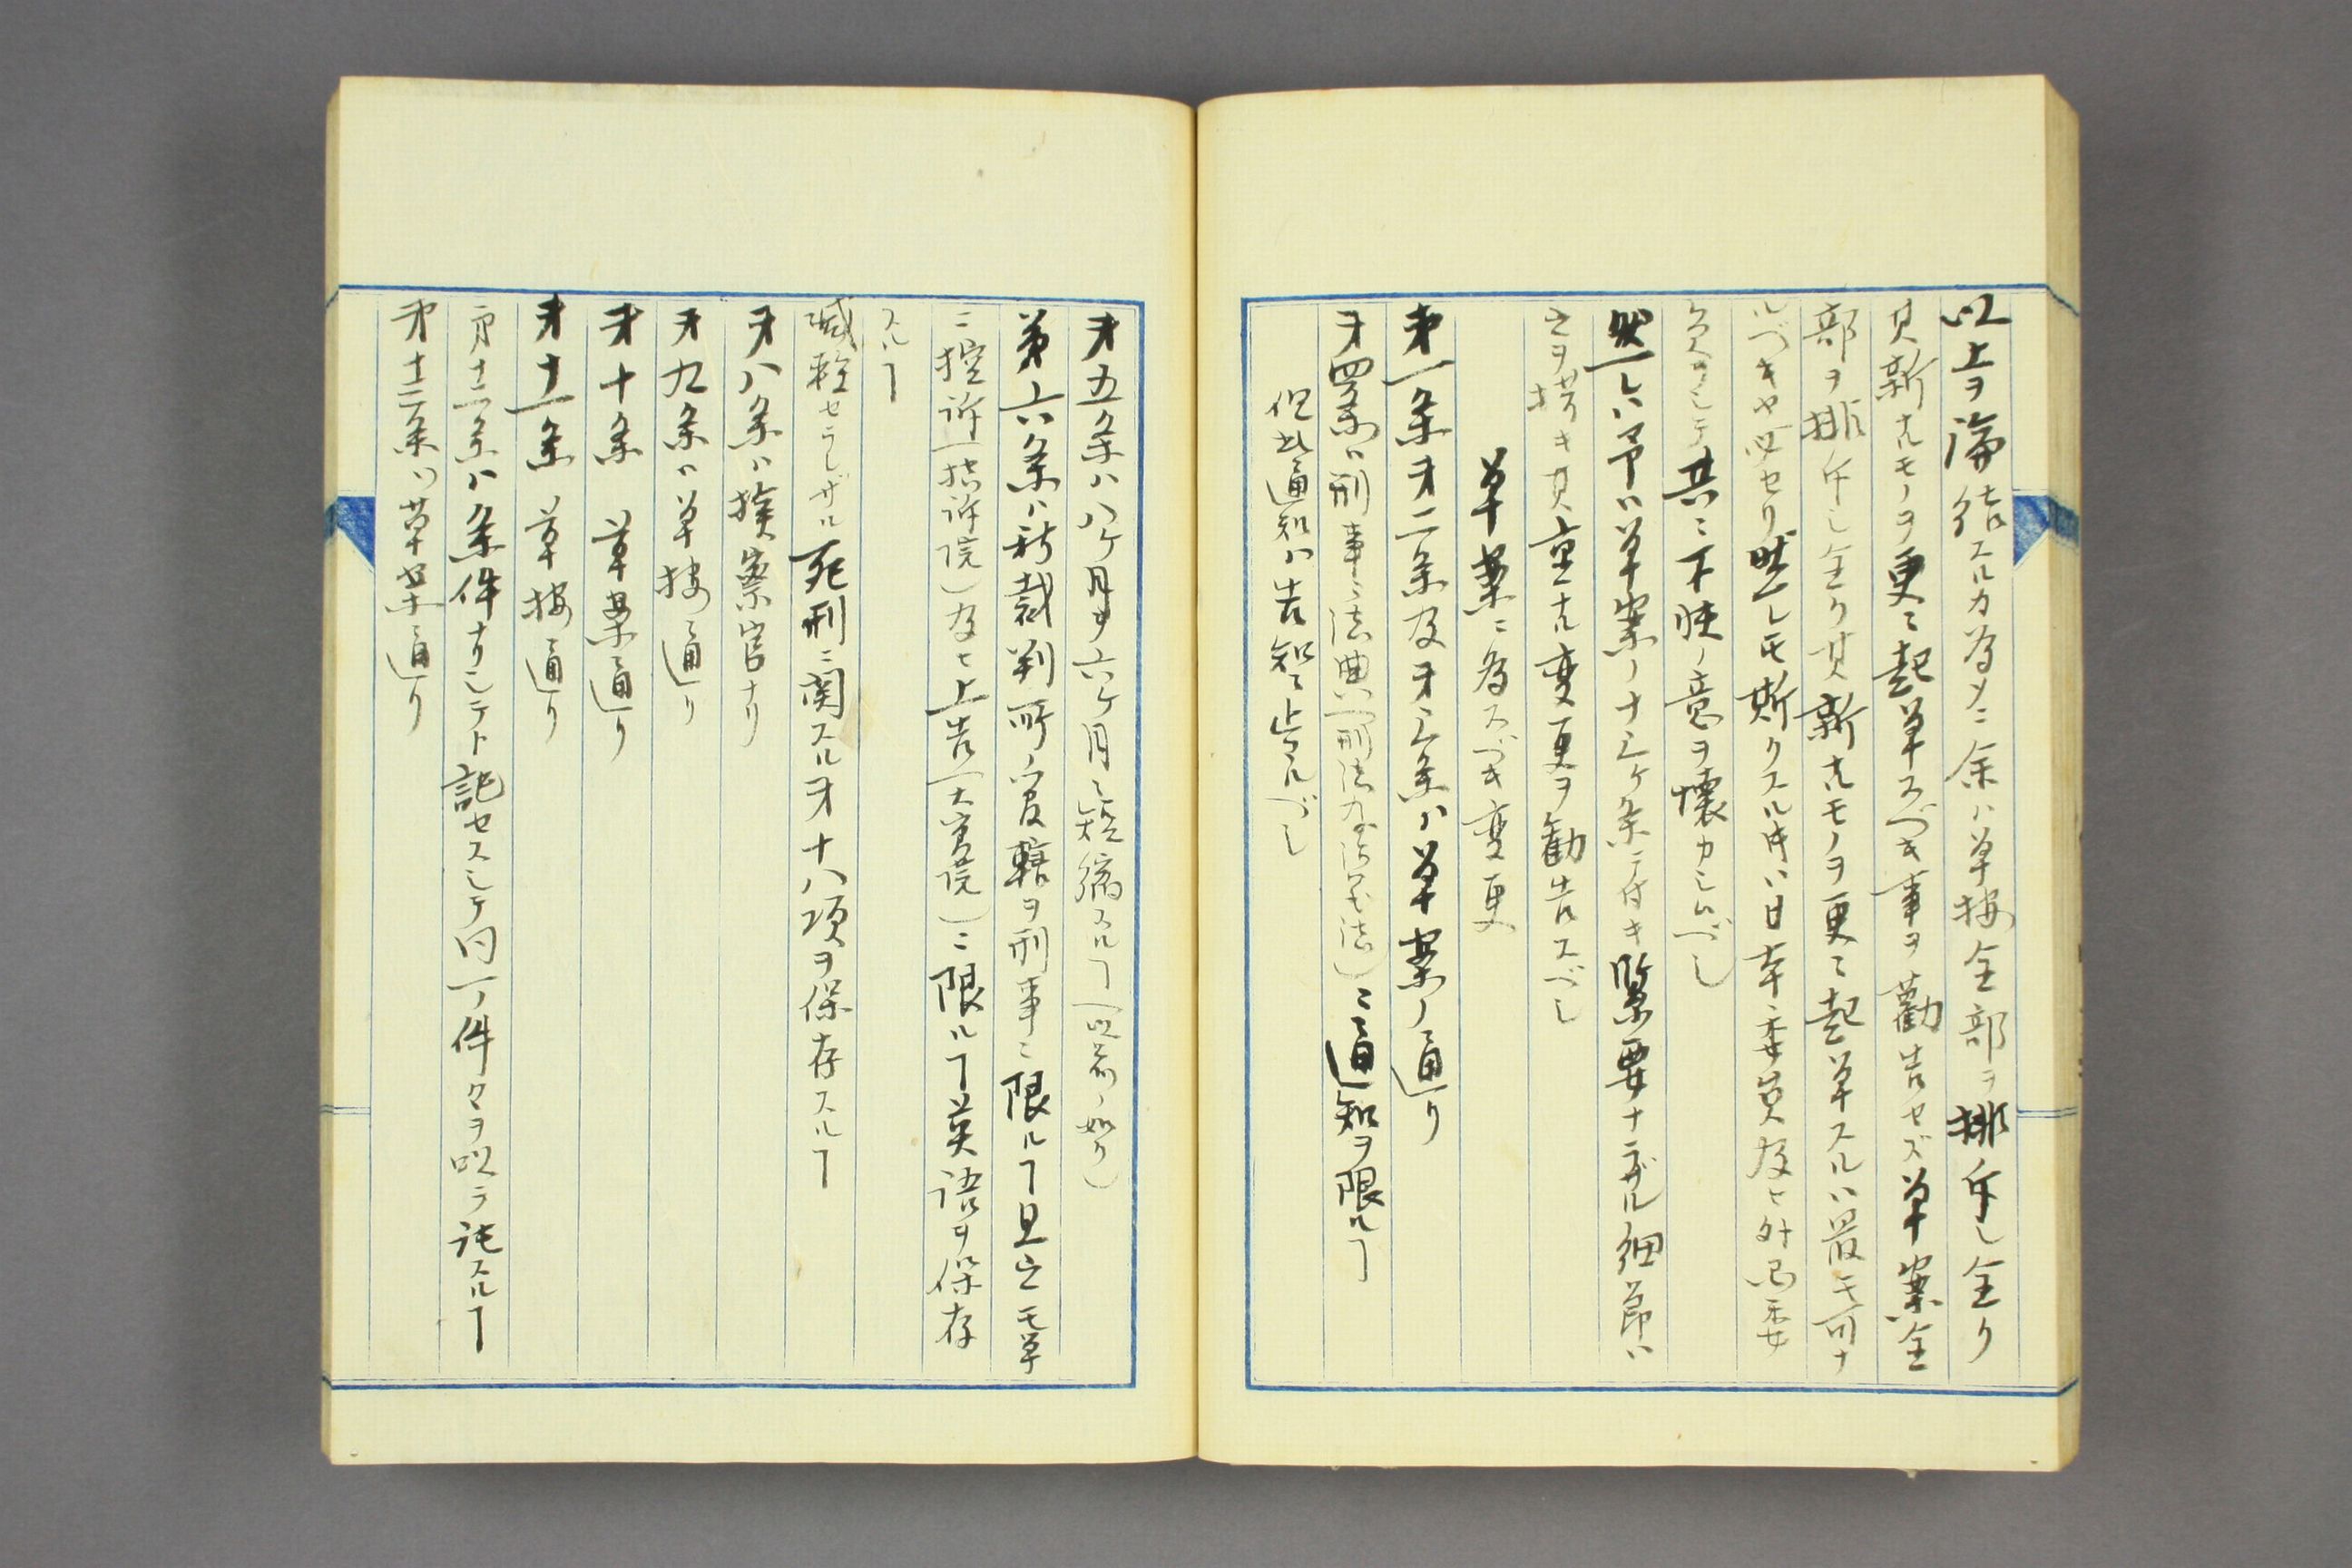 以上ヲ論結スルカ為メニ余ハ草按全部ヲ排斥シ全ク
其新ナルモノヲ更ニ起草スベキ事ヲ勧告セズ草案全
部ヲ排斥シ全ク其新ナルモノヲ更ニ起草スルハ最モ可ナ
ルベキヤ必セリ然レモ斯クスル時ハ日本委員及ヒ外国委
員ヲシテ共ニ不快ノ意ヲ壊カシムベシ
然レハ予ハ草案ノ十三ケ条ニ付キ緊要ナラザル細節ハ
之ヲ措キ其重ナル変更ヲ勧告スベシ
草案ニ為スベキ変更
第一条才二条及才三条ハ草案ノ通リ
才四条ハ刑事ニ法典(刑法及治罪法)ニ通知ヲ限ルヿ
但此通知ハ告知ニ止マルベシ
才五条ハ八ケ月ヲ六ケ月ニ短縮スルヿ(以前ノ如ク)
第六条ハ新裁判所ノ管轄ヲ刑事ニ限ルヿ且之モ単
ニ控訴(控訴院)及ヒ上告(大審院)ニ限ルヿ英語ヲ保存
スルヿ
減軽セラレザル死刑ニ関スル才十八項ヲ保存スルヿ
才八条ハ検察官ナリ
才九条ハ草按ノ通リ
才十条 草案ノ通リ
才十一条 草按ノ通リ
第十二条ハ条件ナリシテト記セスシテ同一ノ件々ヲ以テ託スルヿ
才十三条ハ草案ノ通リ